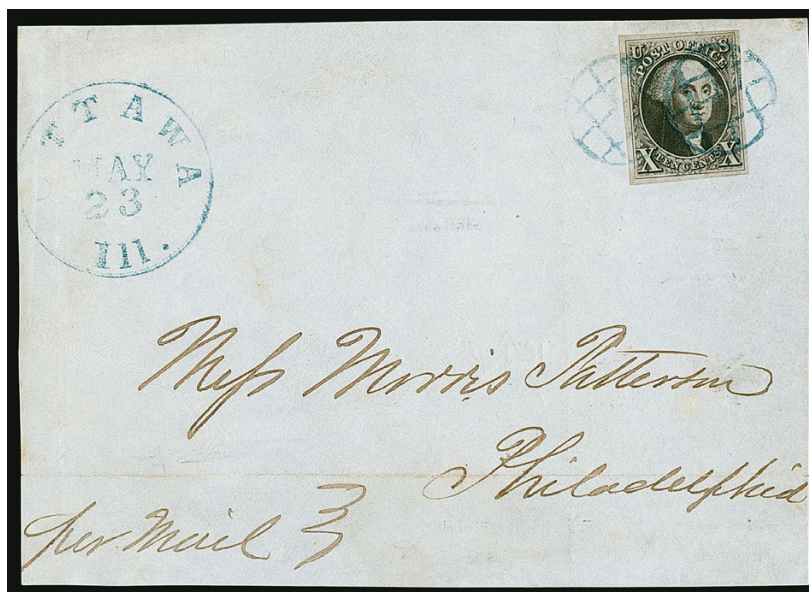 OTTAWA
MAY
23
Ill.
U S
POST OFFICE
X TEN CENTS X
Mess Morris Patterson
Philadelphia
per Mail